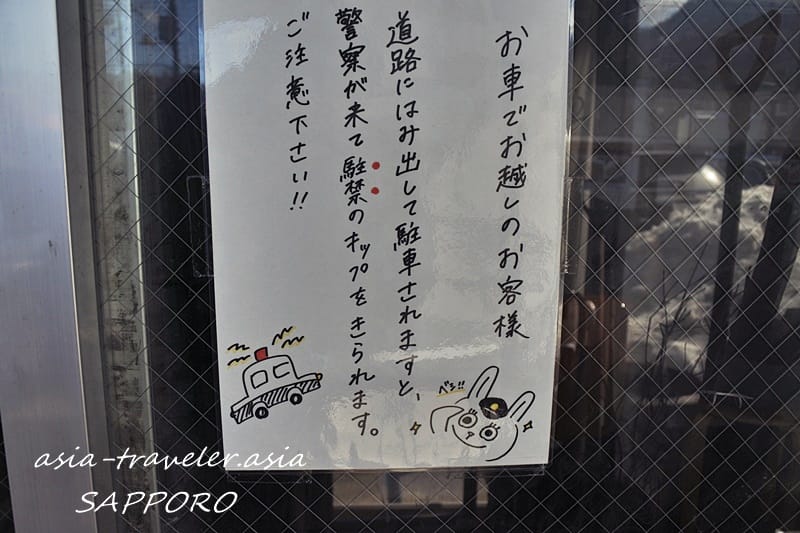 お車でお越しのお客様
道路にはみ出して駐車されますと、
警察が来て駐禁のキップをきられます。
ご注意下さい!!
ペシ!!
asia-traveler.asia
SAPPORO